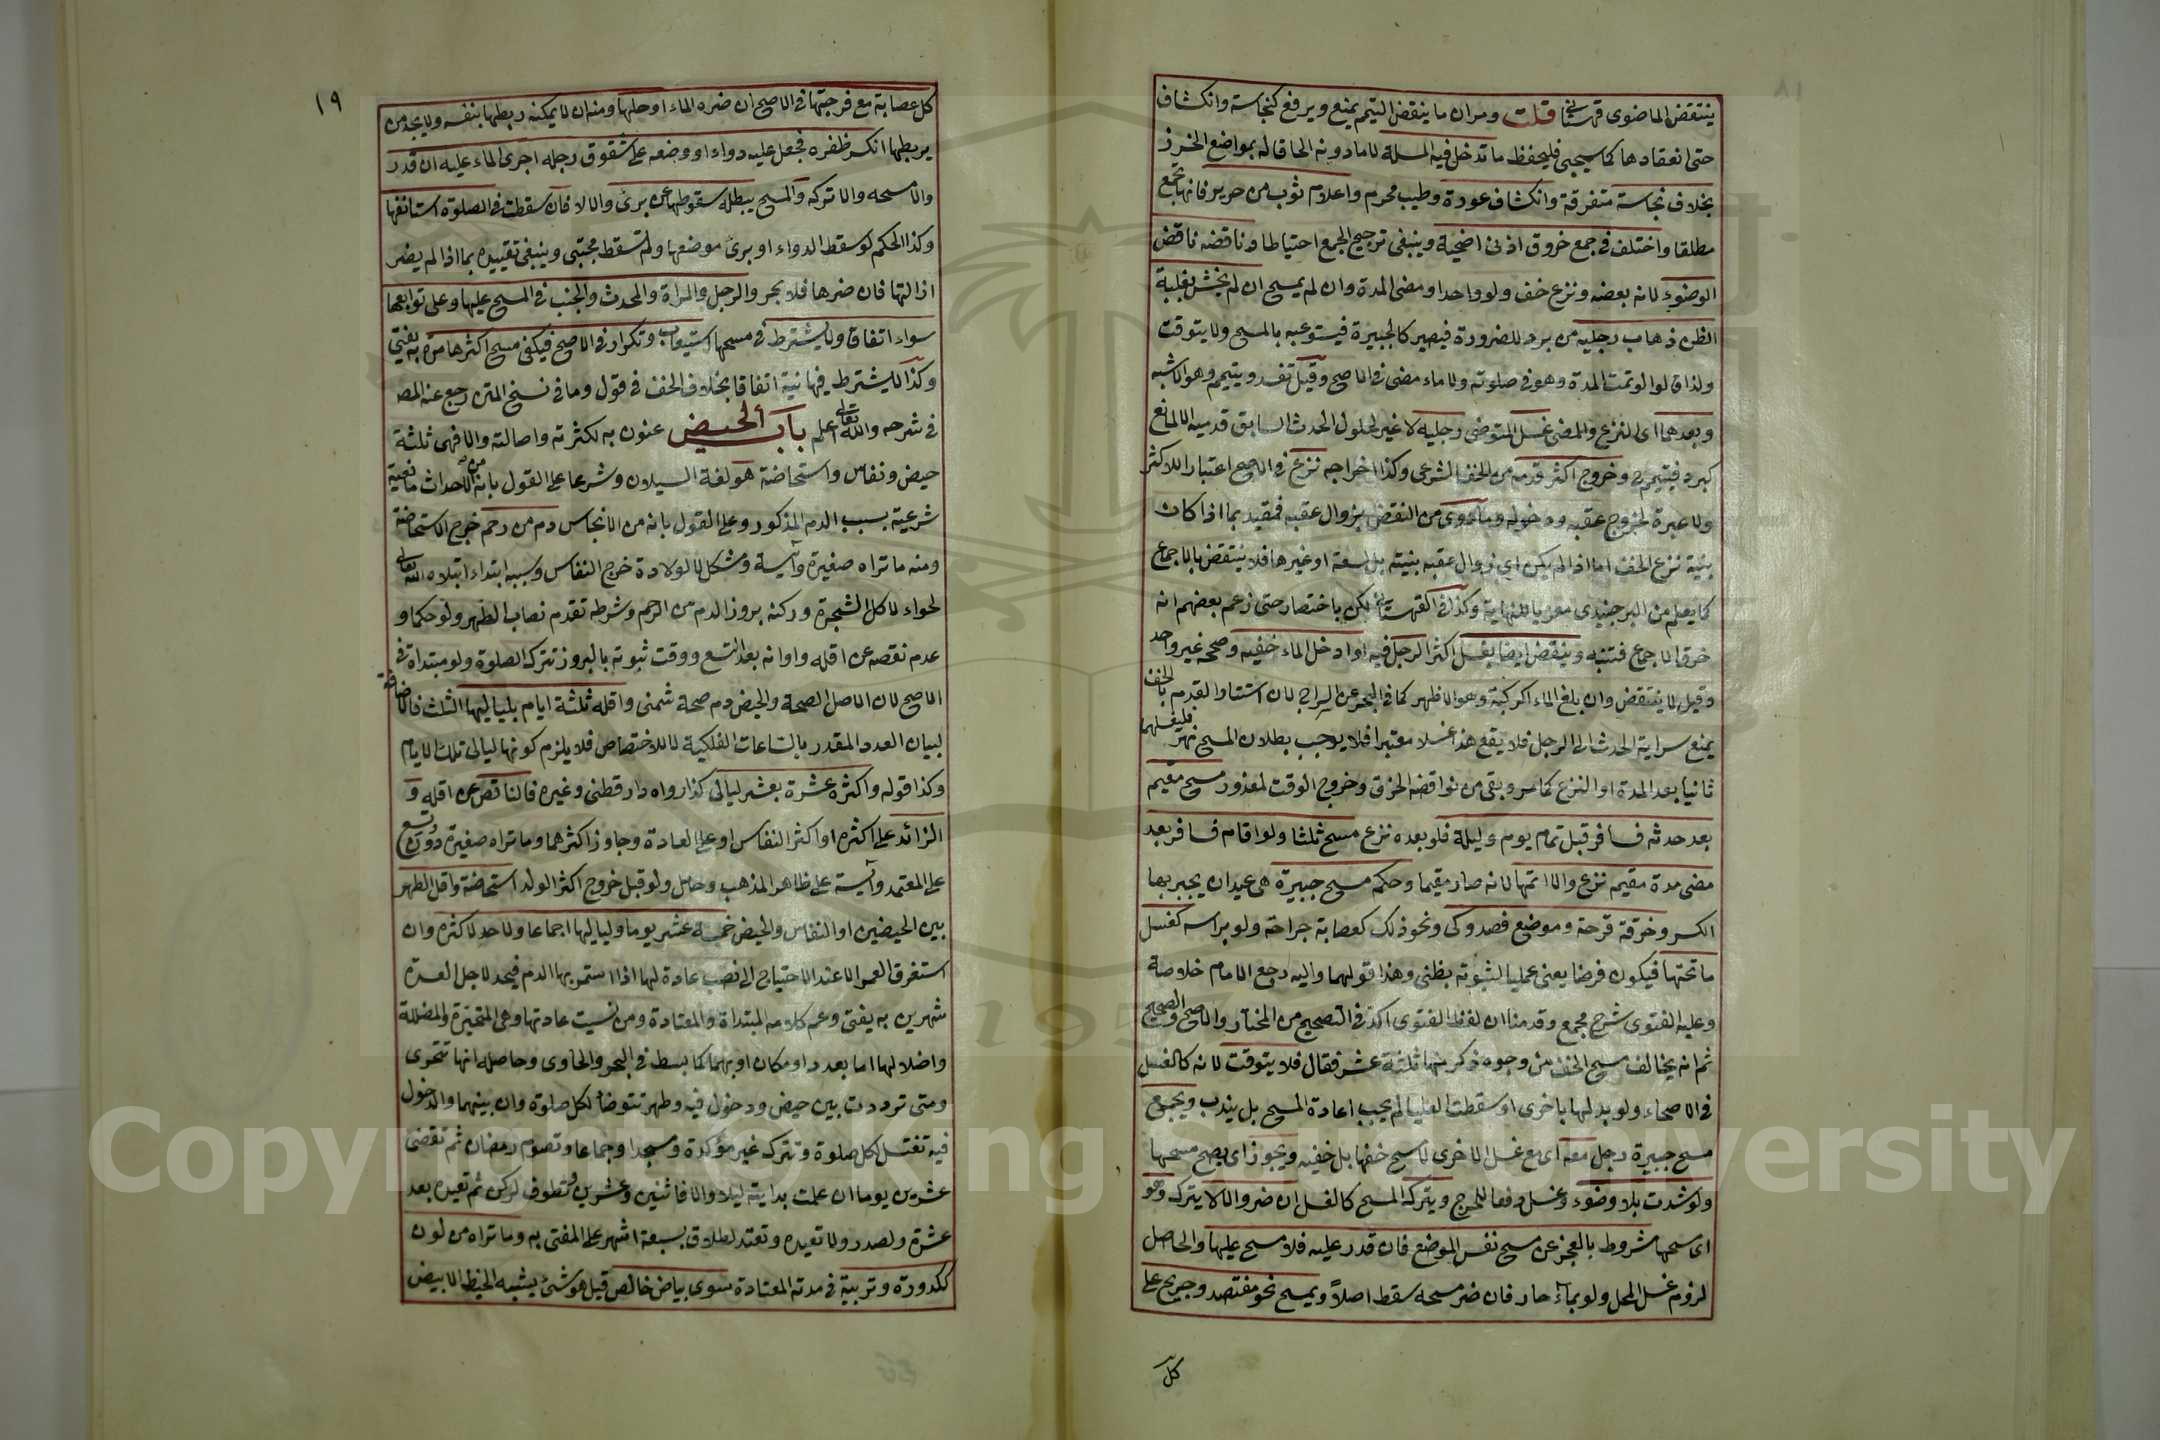 ينتقض الماضوى قهستانى قلت ومران ما ينقض التيمم يمنع ويرفع كنجاسة وانكشاف
حتى انعقادها كما سيجئ فليحفظ ما تدخل فيه المسلة لا ما دونه الحاقا له بمواضع الخرز
بخلاف نجاسة متفرقة وانكشاف عورة وطيب محرم واعلام ثوب من حرير فانها تجمع
مطلقا واختلف في جمع خروق اذنى اضحية وينبغى ترجيح الجمع احتياطا وناقضه ناقض
الوضوء لانه بعضه ونزع خف ولو واحدا ومضى المدة وان لم يمسح ان لم يخش بغلبة
الظن ذهاب رجليه من برد للضرورة فيصير كالجبيرة فيستوعبه بالمسح ولا يتوقت
ولذا قالوا لو تمت المدة وهو في صلوته ولا ماء مضى في الاصح وقيل تفسد ويتيمم وهو الاشبه
وبعدهما اى النزع والمضى غسل المتوضى رجليه لا غير لحلول الحدث السابق قدميه الا لمانع
كبرد فيتيمم ح وخروج اكثر قدمه من الخف الشرعى وكذا اخراجه نزع في الاصح اعتبارا للاكثر
ولا عبرة لخروج عقبه ودخوله وما روى من النقض بزوال عقبه فمقيد بما اذا كان
بنية نزع الخف اما اذا لم يكن اى زوال عقبه بنيته بل لسعة او غيرها فلا ينتقض بالاجماع
كما يعلم من البرجندى معزيا للنهاية وكذا في القهستانى لكن باختصار حتى زعم بعضهم انه
خرق الاجماع فتنبه وينتقض ايضا بغسل اكثر الرجل فيه لو ادخل الماء خفيه وصححه غير واحد
وقيل لا ينتقض وان بلغ الماء الركبة وهو الاظهر كما في البحر عن السراج لان استتار القدم بالخف
يمنع سراية الحدث الى الرجل فلا يقع هذا غسلا معتبرا فلا يوجب بطلان المسح نهر فليغسلهما
ثانيا بعد المدة او النزع كما مر وبقى من نواقضه الخرق وخروج الوقت لمعذور مسح مقيم
بعد حدثه فسافر قبل تمام يوم وليلة فلو بعده نزع مسح ثلثا ولو اقام مسافر بعد
مضى مدة مقيم نزع والا اتمها لانه صار مقيما وحكم مسح جبيرة هى عيدان يجبر بها
الكسر وخرقة قرحة وموضع فصد وكى ونحو ذلك كعصابة جراحة ولو براسه كغسل
ما تحتها فيكون فرضا يعنى عمليا لثبوته بظنى وهذا قولهما واليه رجع الامام خلاصة
وعليه الفتوى شرح مجمع وقدمنا ان لفظ الفتوى اكد في التصحيح من المختار والاصح والصحيح
ثم انه يخالف مسح الخف من وجوه ذكر منها ثلثة عشر فقال فلا يتوقت لانه كالغسل
في الاصحاء ولو بدلها باخرى او سقطت العليا لم يجب اعادة المسح بل يندب ويجمع
مسح جبيرة رجل معه اى مع غسل الاخرى لا مسح خفها بل خفيه ويجوز اى يصح مسحها
ولو شدت بلا وضوء وغسل دفعا للحرج ويترك المسح كالغسل ان ضر والا لا يترك وهو
اى مسحها مشروط بالعجز عن مسح نفس الموضع فان قدر عليه فلا مسح عليها والحاصل
لزوم غسل المحل ولو بماء حار فان ضر مسحه سقط اصلا ويمسح نحو مفتصد وجريح على
كل
١٩
كل عصابة مع فرجتها في الاصح ان ضره الماء او حلها ومنه ان لا يمكنه ربطها بنفسه ولا يجد من
يربطها انكسر ظفره فجعل عليه دواء او وضعه على شقوق رجله اجرى الماء عليه ان قدر
والا مسحه والا تركه والمسح يبطله سقوطها عن برئ والا لا فان سقطت في الصلوة استانفها
وكذا الحكم لو سقط الدواء او برئ موضعها ولم تسقط مجتبى وينبغى تقييده بما اذا لم يضر
ازالتها فان ضرها فلا بحر والرجل والمراة والمحدث والجنب في المسح عليها وعلى توابعها
سواء اتفاقا ولا يشترط في مسحها استيعاب وتكرار في الاصح فيكفى مسح اكثرها مرة به يفتى
وكذا لا يشترط فيها نية اتفاقا بخلاف الخف في قول وما في نسخ المتن رجع عنه المص
في شرحه والله تعالى اعلم باب الحيض عنون به لكثرته واصالته والا فهى ثلثة
حيض ونفاس واستحاضة هو لغة السيلان وشرعا على القول بانه من الاحداث مانعية
شرعية بسبب الدم المذكور وعلى القول بانه من الانجاس دم من رحم خرج الاستحاضة
ومنه ما تراه صغيرة وآيسة ومشكل لا لولادة خرج النفاس وسببه ابتداء ابتلاه الله تعالى
لحواء لاكل الشجرة وركنه بروز الدم من الرحم وشرطه تقدم نصاب الطهر ولو حكما و
عدم نقصه عن اقله واوانه بعد التسع ووقت ثبوته بالبروز تترك الصلوة ولو مبتداة في
الاصح لان الاصل الصحة والحيض دم صحة شمنى واقله ثلثة ايام بلياليها الثلث فالاضافة
لبيان العدد المقدر بالساعات الفلكية لا للاختصاص فلا يلزم كونها ليالى تلك الايام
وكذا قوله واكثره عشرة بعشر ليالى كذا رواه دارقطنى وغيره فالناقص عن اقله و
الزائد على اكثره او اكثر النفاس او على العادة وجاوز اكثرهما وما تراه صغيرة دون تسع
على المعتمد وآيسة على ظاهر المذهب وحامل ولو قبل خروج اكثر الولد استحاضة واقل الطهر
بين الحيضين او النفاس والحيض خمسة عشر يوما ولياليها اجماعا ولا حد لاكثره وان
استغرق العمر الا عند الاحتياج الى نصب عادة لها اذا استمر بها الدم فيحد لاجل العدة
شهرين به يفتى وعم كلامه المبتداة والمعتادة ومن نسيت عادتها وهى المتحيرة والمضللة
واضلالها اما بعدد او مكان او بهما كما بسط في البحر والحاوى وحاصله انها تتحرى
ومتى ترددت بين حيض ودخول فيه وطهر تتوضأ لكل صلوة وان بينهما والدخول
فيه تغتسل لكل صلوة وتترك غير مؤكدة ومسجدا وجماعا وتصوم رمضان ثم تقضى
عشرين يوما ان علمت بدايته ليلا والا فاثنين وعشرين وتطوف لركن ثم تعيده بعد
عشرة ولصدر ولا تعيده وتعتد لطلاق بسبعة اشهر على المفتى به وما تراه من لون
ككدورة وتربية في مدته المعتادة سوى بياض خالص قيل هو شئ يشبه الخيط الابيض
Copyright © King Saud University